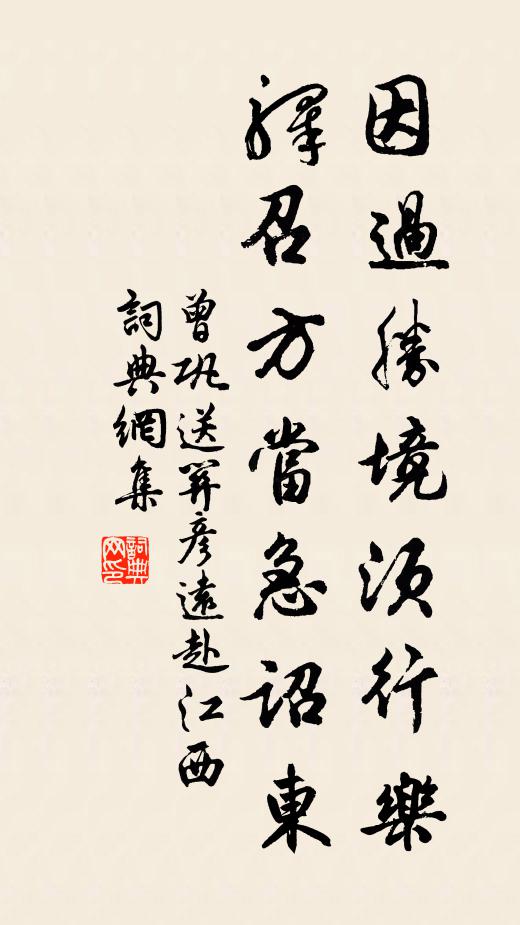 因過勝境須行樂
驛召方當急詔東
曾巩送關彥遠赴江西
詞典網集
詞典网印